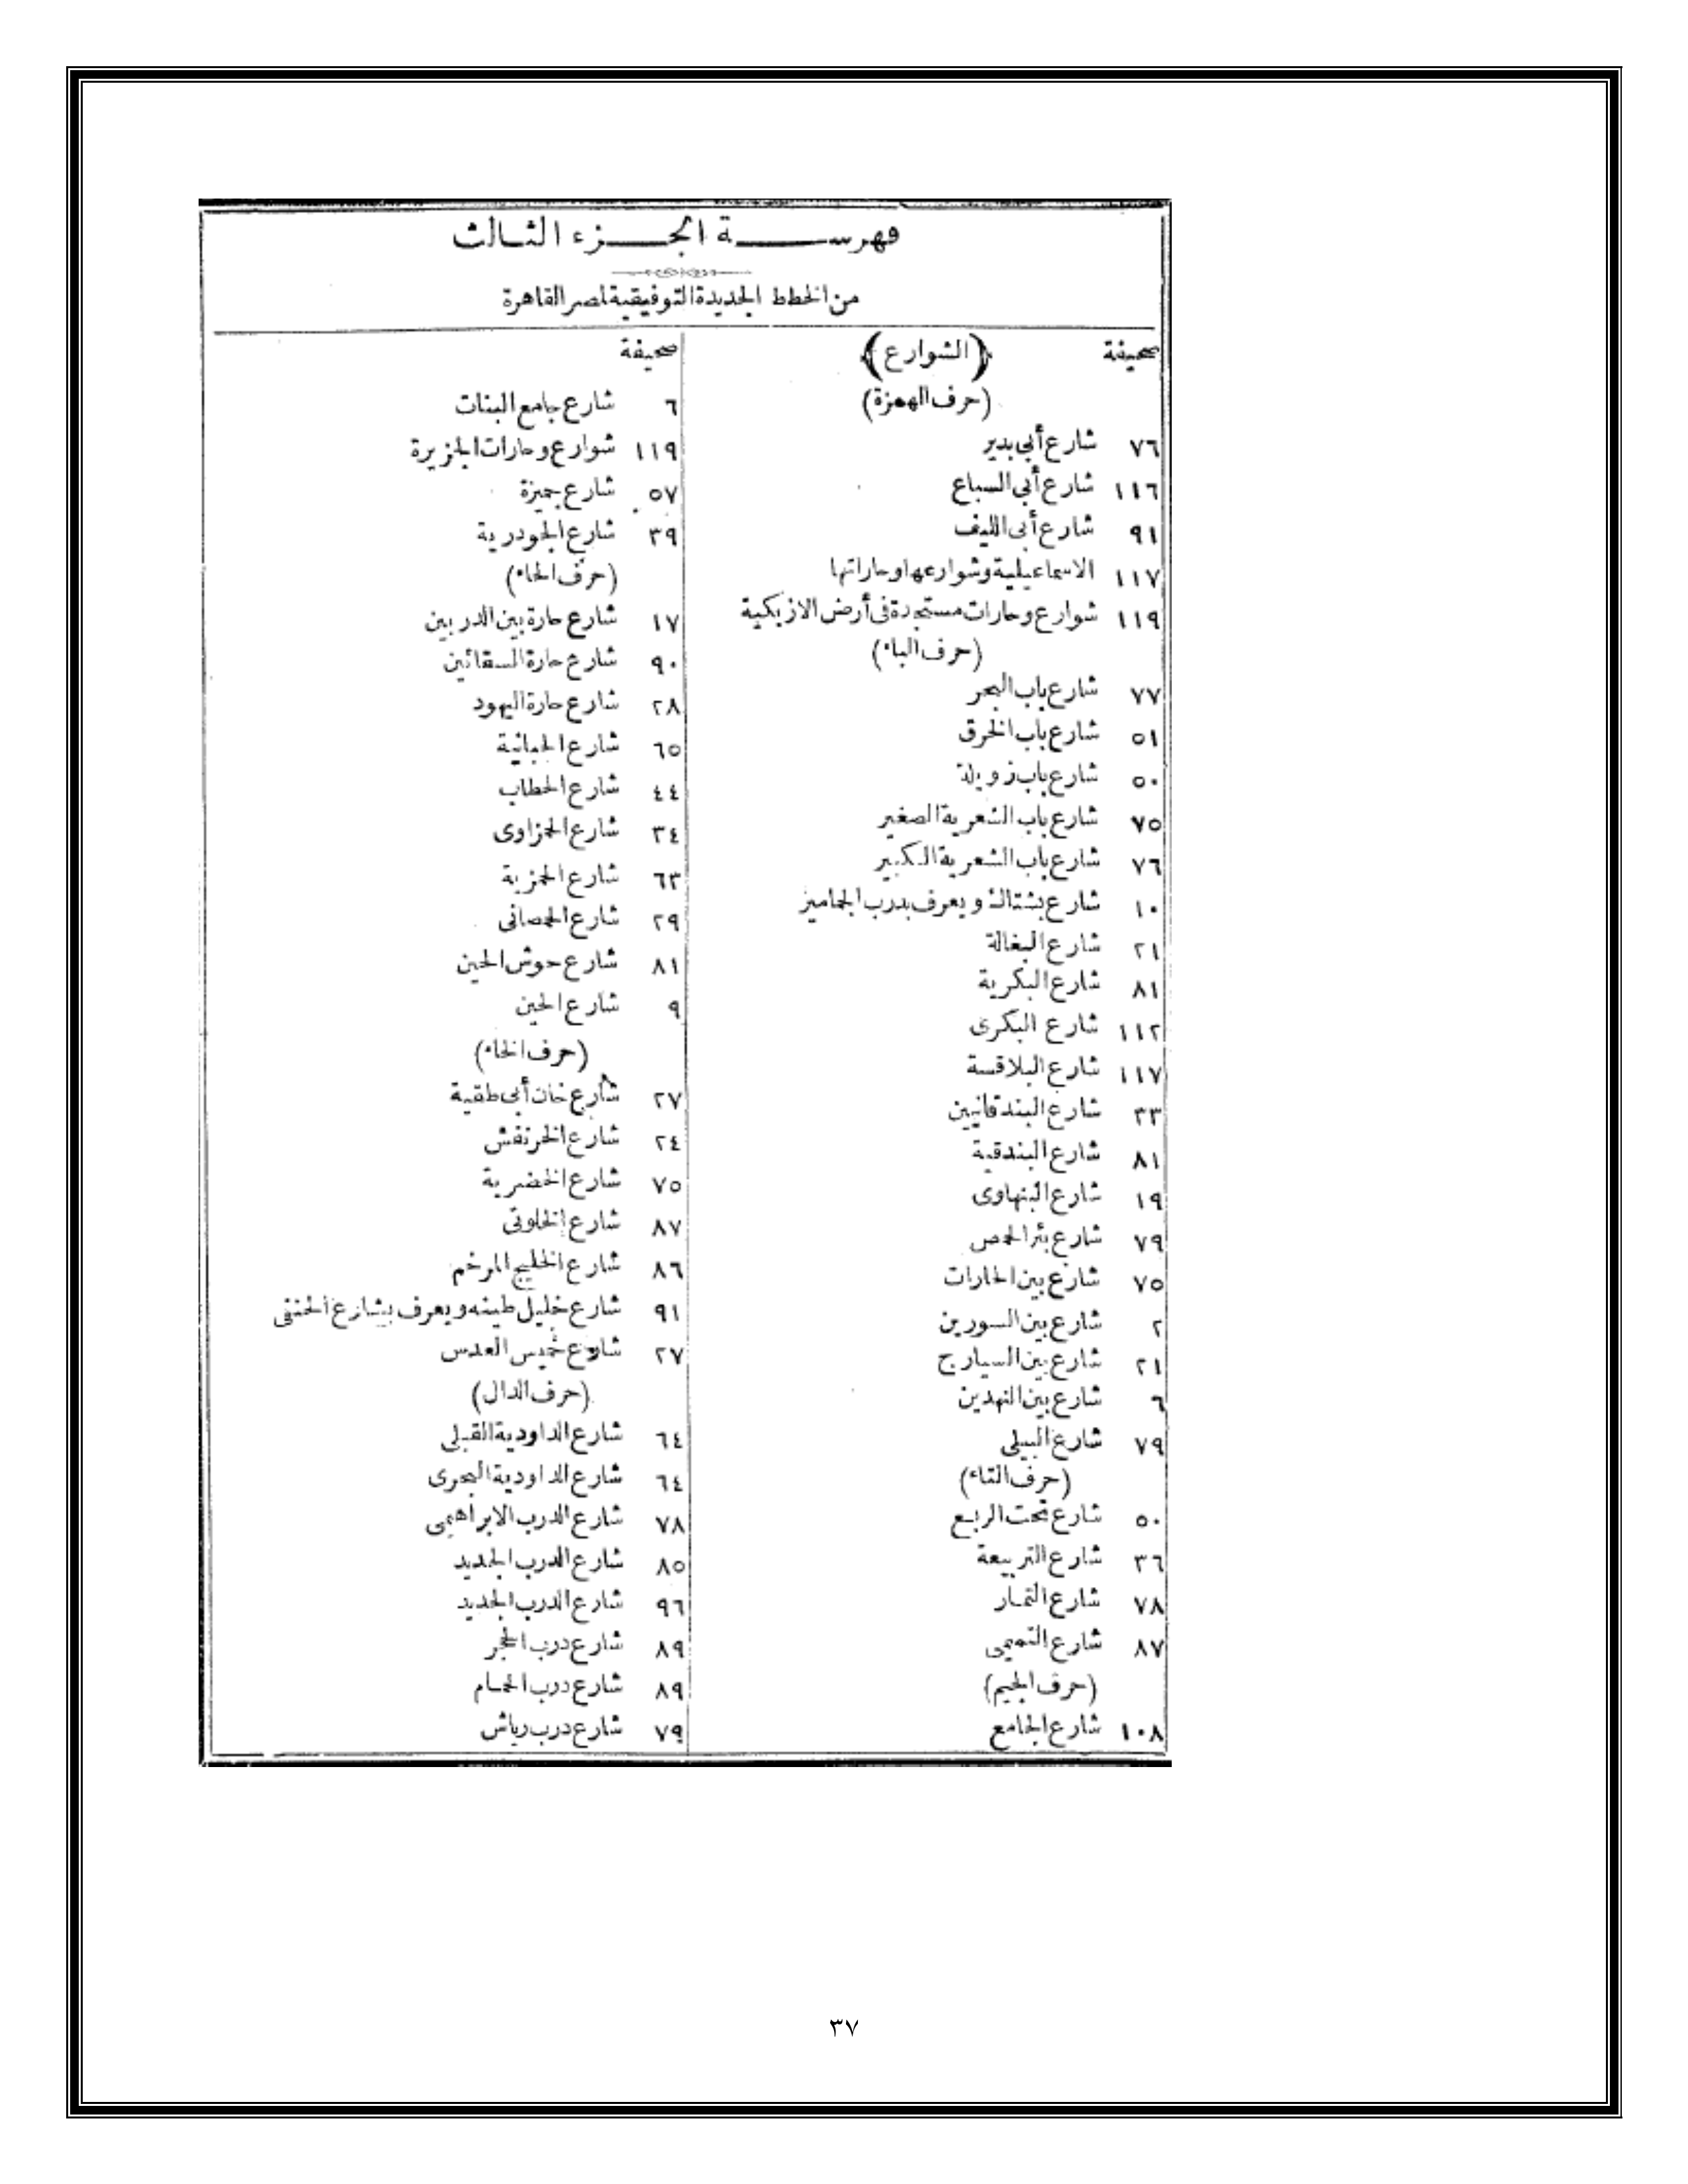 فهرسة الجزء الثالث
من الخطط الجديدة التوفيقية لمصر القاهرة
صحيفة
(الشوارع)
(حرف الهمزة)
٧٦ شارع أبي بدير
١١٦ شارع أبي السباع
٩١ شارع أبي الليف
١١٧ الاسماعيلية وشوارعها وحاراتها
١١٩ شوارع وحارات مستجدة في أرض الازبكية
(حرف الباء)
٧٧ شارع باب البحر
٥١ شارع باب الخرق
٥٠ شارع باب زويلة
٧٥ شارع باب الشعرية الصغير
٧٦ شارع باب الشعرية الكبير
١٠ شارع بشتاك ويعرف بدرب الجماميز
٢١ شارع البغالة
٨١ شارع البكرية
١١٢ شارع البكرى
١١٧ شارع البلاقسة
٣٣ شارع البندقانيين
٨١ شارع البندقية
١٩ شارع البنهاوى
٧٩ شارع بئر الحمص
٧٥ شارع بين الحارات
٢ شارع بين السورين
٢١ شارع بين السيارج
٦ شارع بين النهدين
٧٩ شارع البيلى
(حرف التاء)
٥٠ شارع تحت الربع
٣٦ شارع التربيعة
٧٨ شارع التمار
٨٧ شارع التميمى
(حرف الجيم)
١٠٨ شارع الجامع
صحيفة
٦ شارع جامع البنات
١١٩ شوارع وحارات الجزيرة
٥٧ شارع جميزة
٣٩ شارع الجودرية
(حرف الحاء)
١٧ شارع حارة بين الدربين
٩٠ شارع حارة السقائين
٢٨ شارع حارة اليهود
٦٥ شارع الحبانية
٤٤ شارع الحطاب
٣٤ شارع الحمزاوى
٦٣ شارع الحمزية
٢٩ شارع الحمصانى
٨١ شارع حوش الحين
٩ شارع الحين
(حرف الخاء)
٢٧ شارع خان أبي طقية
٢٤ شارع الخرنفش
٧٥ شارع الخضرية
٨٧ شارع الخلوتى
٨٦ شارع الخليج المرخم
٩١ شارع خليل طينه ويعرف بشارع الحنفى
٢٧ شارع خميس العدس
(حرف الدال)
٦٤ شارع الداودية القبلى
٦٤ شارع الداودية البحرى
٧٨ شارع الدرب الابراهيمى
٨٥ شارع الدرب الجديد
٩٦ شارع الدرب الجديد
٨٩ شارع درب الحجر
٨٩ شارع درب الحمام
٧٩ شارع درب رياش
٣٧